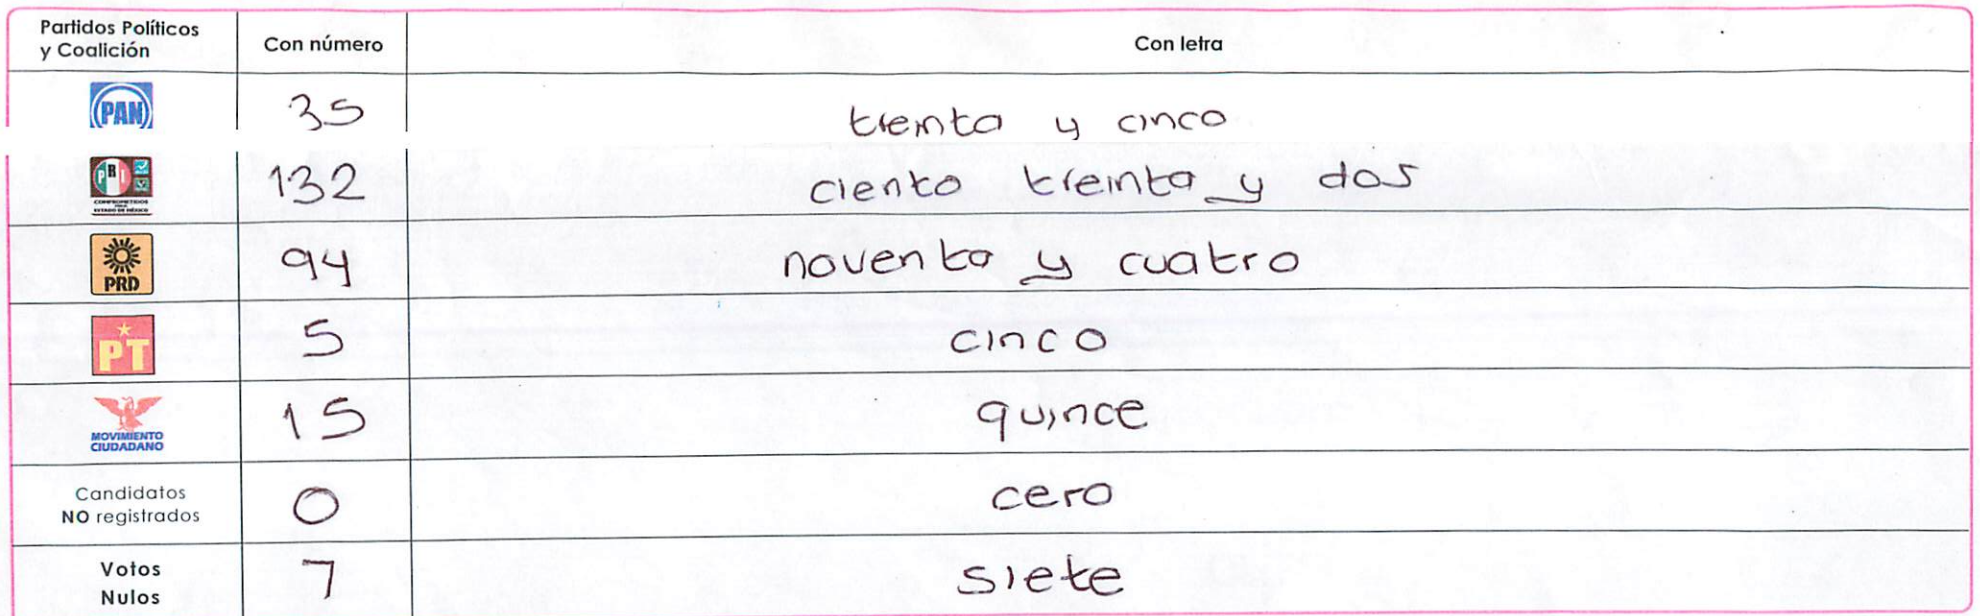 Partidos Políticos
y Coalición
Con número
Con letra
PAN
35
treinta y cinco
PRI
COMPROMETIDOS
ESTADO DE MÉXICO
132
ciento treinta y dos
PRD
94
noventa y cuatro
PT
5
cinco
MOVIMIENTO
CIUDADANO
15
quince
Candidatos
NO registrados
0
cero
Votos
Nulos
7
siete